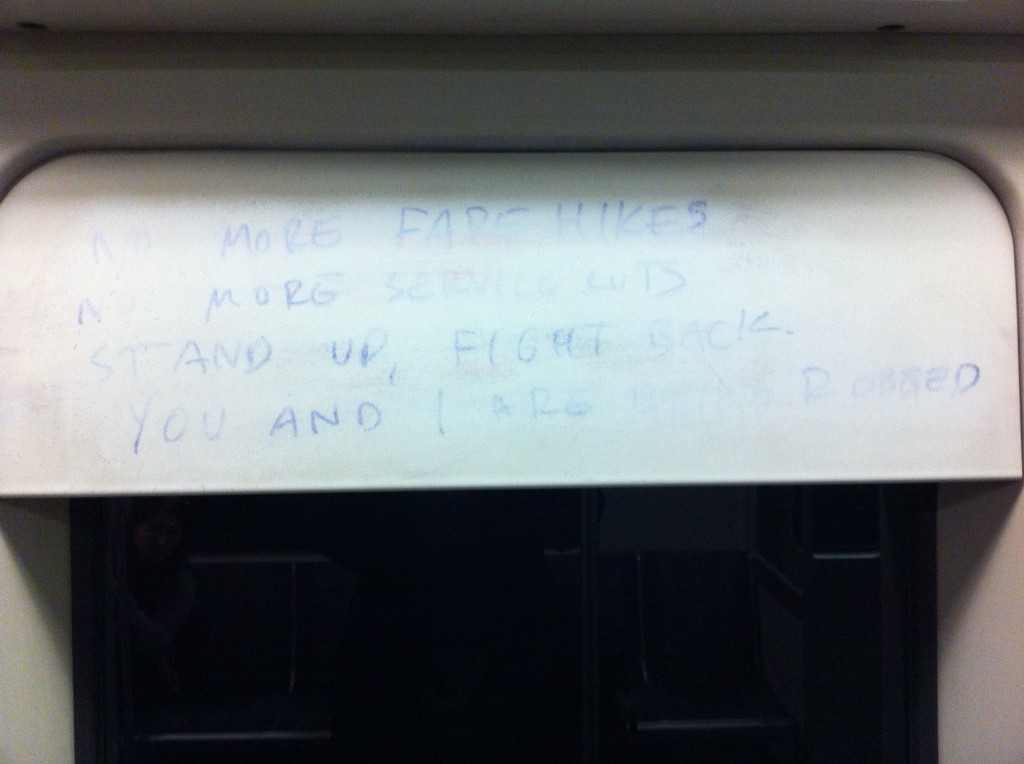 NO MORE FARE HIKES
NO MORE SERVICE CUTS
STAND UP, FIGHT BACK.
YOU AND I ARE BEING ROBBED